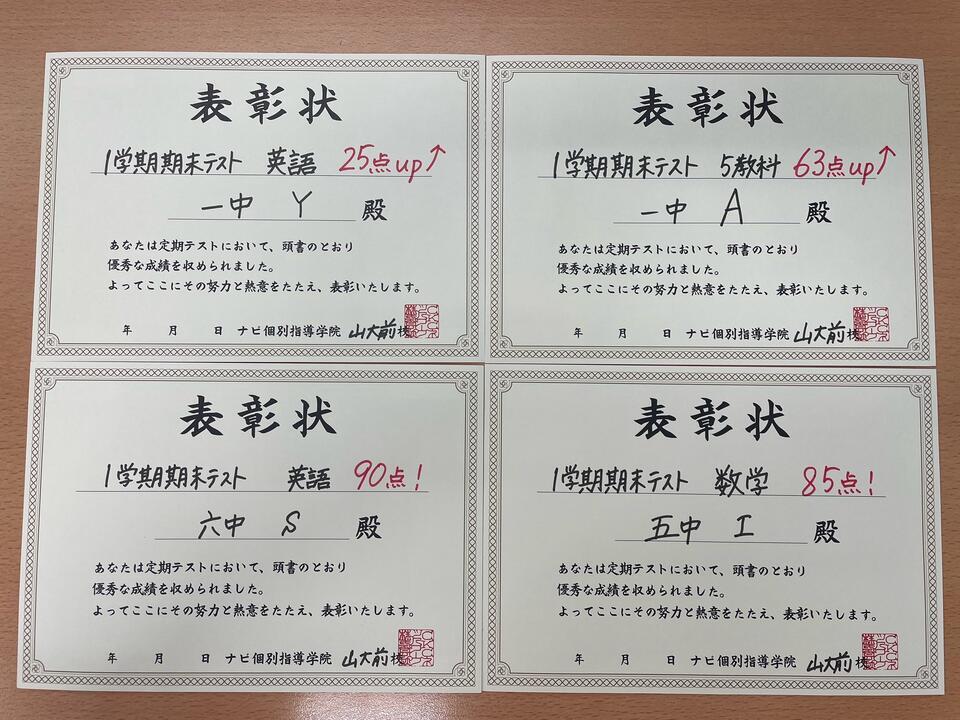 表彰状
1学期期末テスト 英語 25点up↑
一中 Y 殿
あなたは定期テストにおいて、頭書のとおり
優秀な成績を収められました。
よってここにその努力と熱意をたたえ、表彰いたします。
年 月 日 ナビ個別指導学院 山大前校
表彰状
1学期期末テスト 5教科 63点up↑
一中 A 殿
あなたは定期テストにおいて、頭書のとおり
優秀な成績を収められました。
よってここにその努力と熱意をたたえ、表彰いたします。
年 月 日 ナビ個別指導学院 山大前校
表彰状
1学期期末テスト 英語 90点!
六中 S 殿
あなたは定期テストにおいて、頭書のとおり
優秀な成績を収められました。
よってここにその努力と熱意をたたえ、表彰いたします。
年 月 日 ナビ個別指導学院 山大前校
表彰状
1学期期末テスト 数学 85点!
五中 I 殿
あなたは定期テストにおいて、頭書のとおり
優秀な成績を収められました。
よってここにその努力と熱意をたたえ、表彰いたします。
年 月 日 ナビ個別指導学院 山大前校